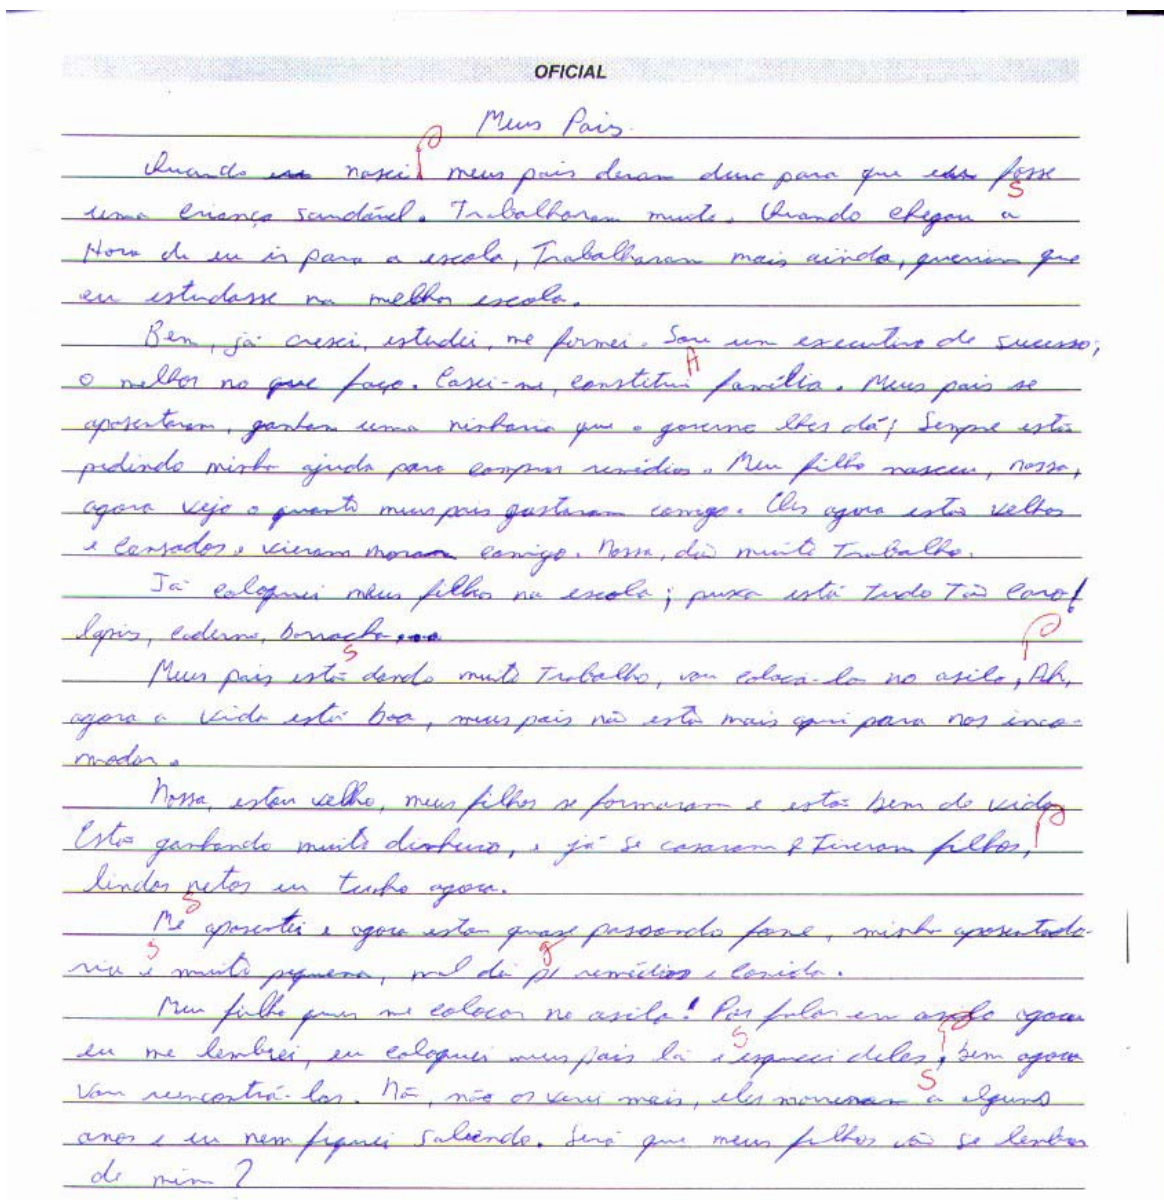 OFICIAL
Meus Pais.
Quando eu nasci meus pais deram duro para que eu fosse
uma criança saudável. Trabalharam muito. Quando chegou a
Hora de eu ir para a escola, Trabalharam mais ainda, queriam que
eu estudasse na melhor escola.
Bem, já cresci, estudei, me formei. Sou um executivo de sucesso,
o melhor no que faço. Casei-me, constitui família. Meus pais se
aposentaram, ganham uma ninharia que o governo lhes dá; Sempre estão
pedindo minha ajuda para comprar remédios. Meu filho nasceu, nossa,
agora vejo o quanto meus pais gastaram comigo. Eles agora estão velhos
e cansados, vieram morar comigo. Nossa, dão muito Trabalho.
Já coloquei meus filhos na escola; puxa está tudo Tão caro!
lapis, caderno, borracha...
Meus pais estão dando muito Trabalho, vou colocá-los no asilo, Ah,
agora a vida está boa, meus pais não estão mais aqui para nos inco-
modar.
Nossa, estou velho, meus filhos se formaram e estão bem de vida
Estão ganhando muito dinheiro, e já se casaram e Tiveram filhos,
lindos netos eu tenho agora.
Me aposentei e agora estou quase passando fome, minha aposentado-
ria é muito pequena, mal dá p/ remédios e comida.
Meu filho quer me colocar no asilo! Por falar em asilo agora
eu me lembrei, eu coloquei meus pais lá e esqueci deles, bem agora
vou reencontrá-los. Não, não os verei mais, eles morreram a alguns
anos e eu nem fiquei sabendo. Será que meus filhos vão se lembrar
de mim?